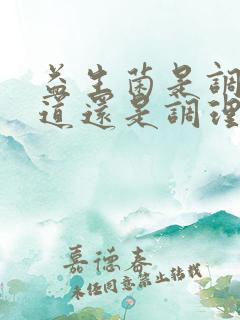 益生菌是調
道還是調理
嘉德春
未经同意禁止转载